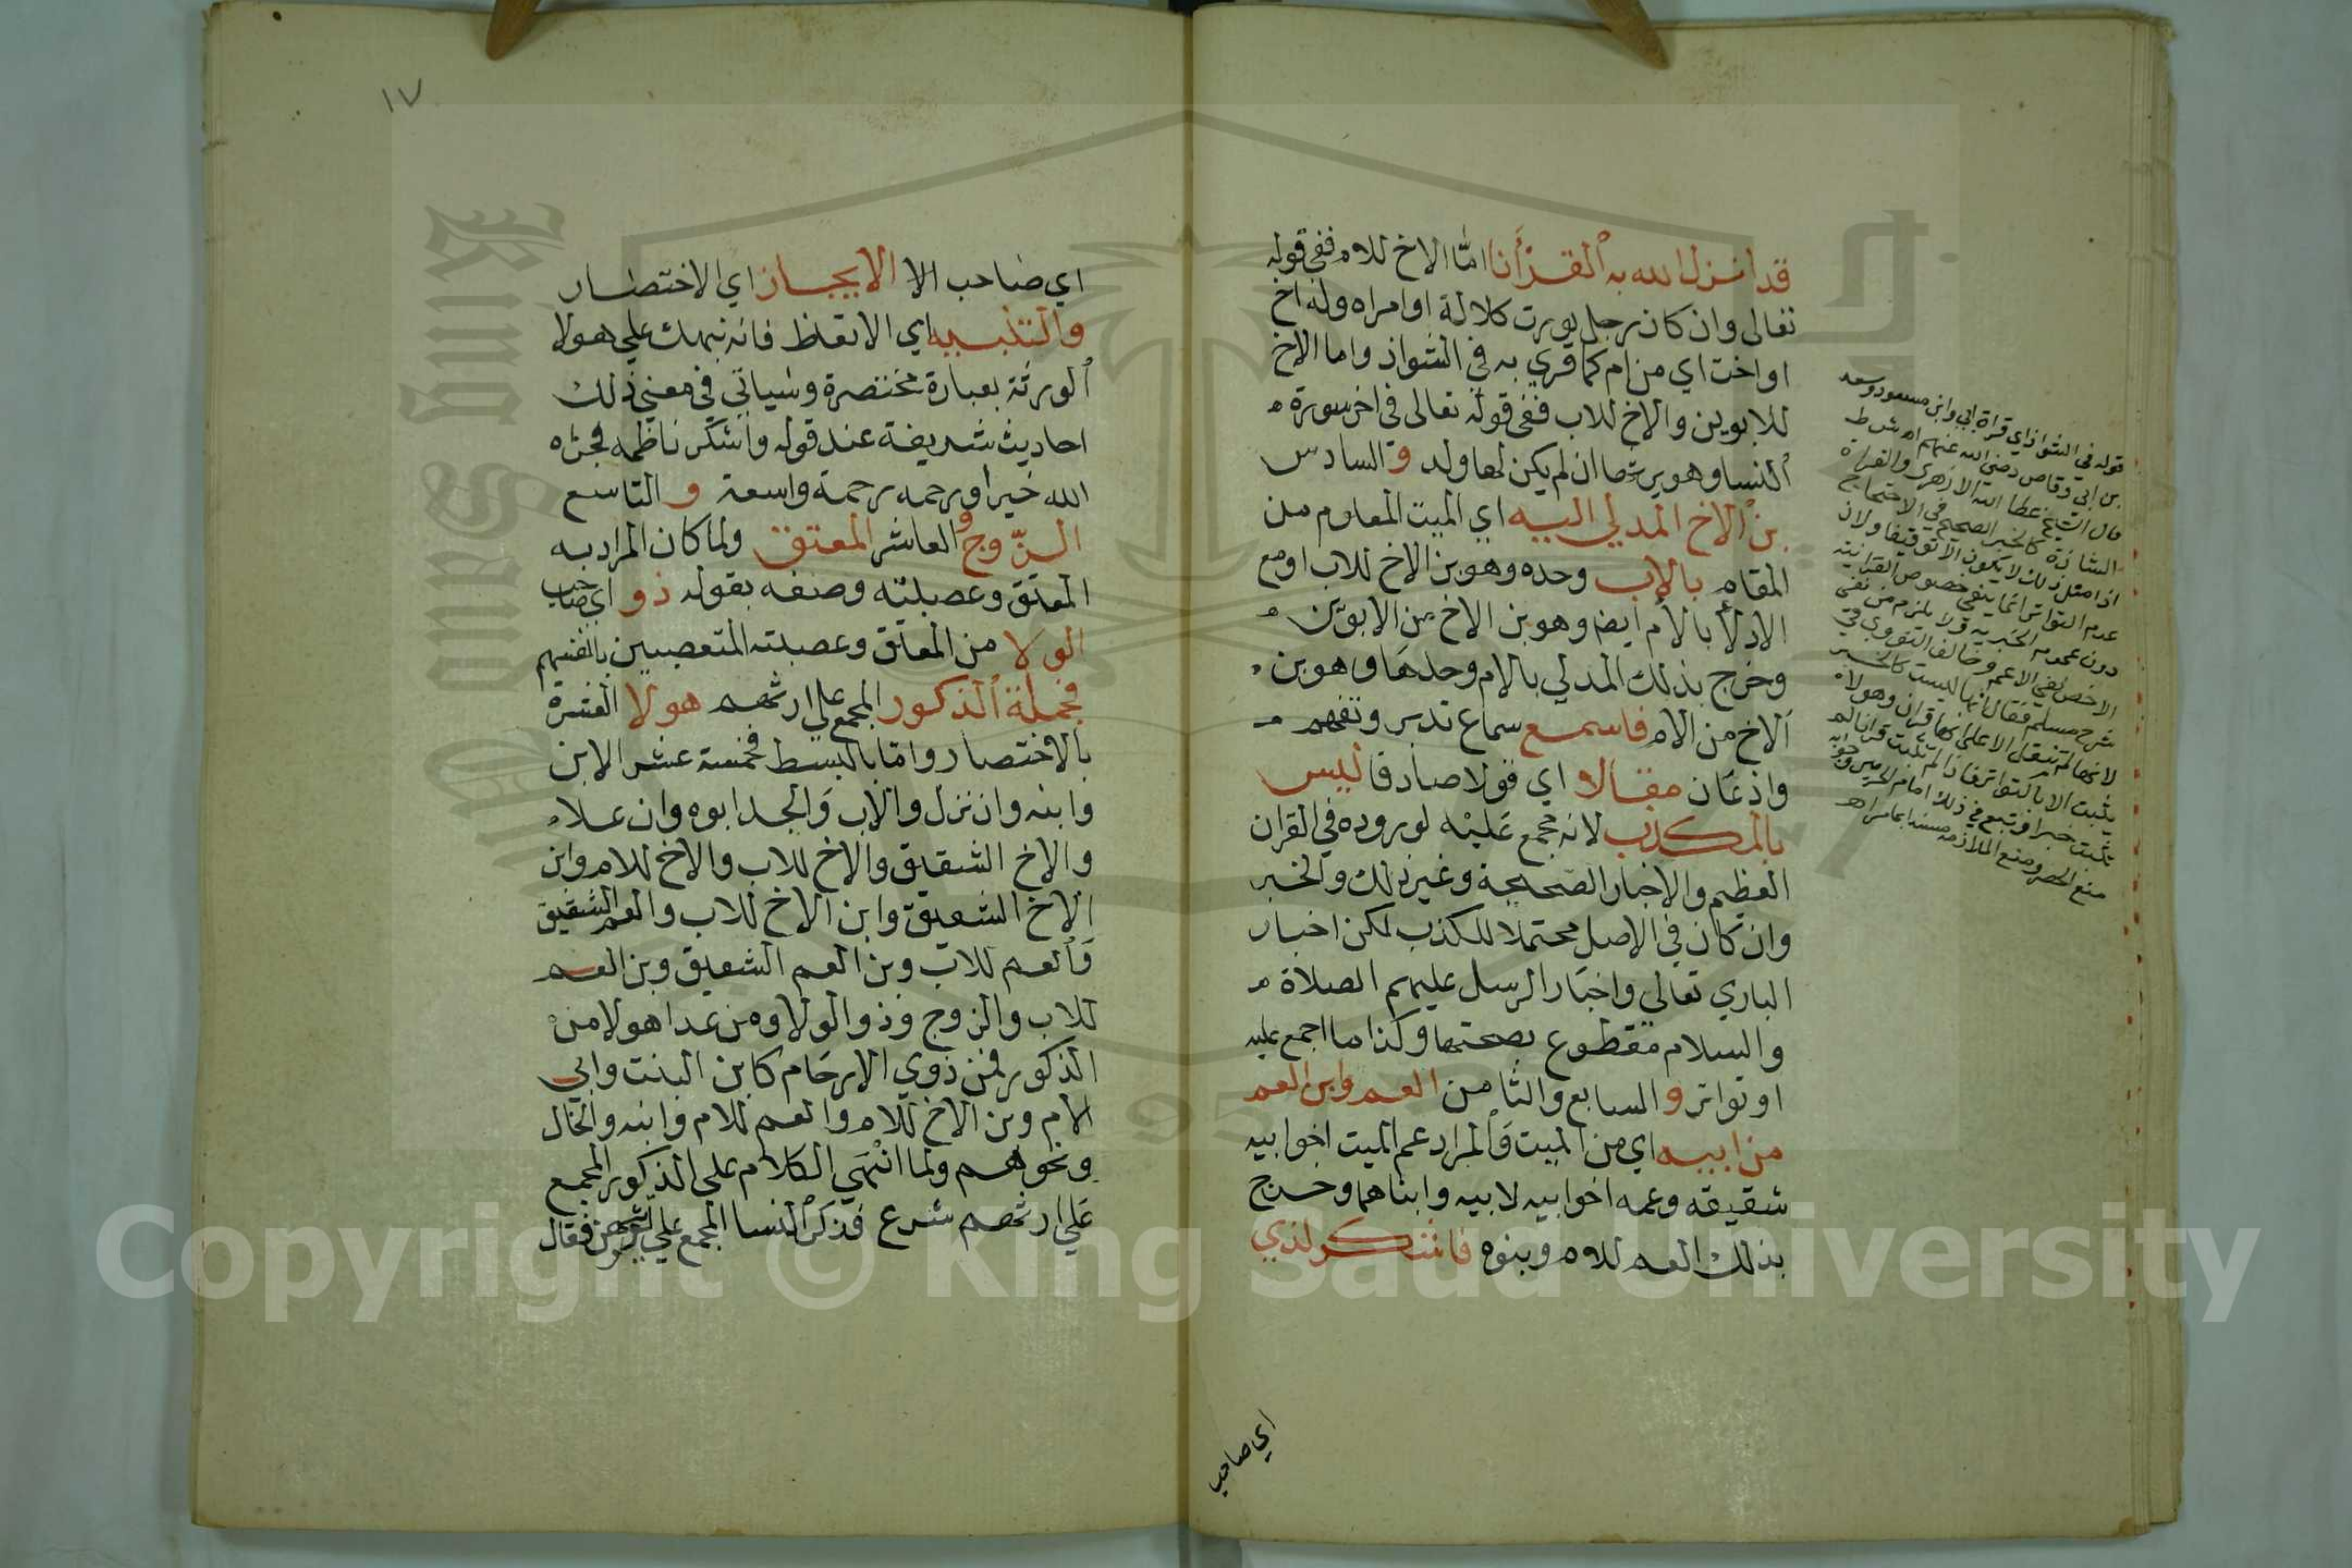 قد انزل الله به القرأنا امّا الاخ للام ففي قوله
تعالى وان كان رجل يورث كلالة او امراه وله اخ
او اخت اي من ام كما قري به في الشواذ واما الاخ
للابوين والاخ للاب ففي قوله تعالى في اخر سورة
النسا وهو يرثها ان لم يكن لها ولد و السادس
بن الاخ المدلي اليه اي الميت المعلوم من
المقام بالاب وحده وهو بن الاخ للاب او مع
الادلا بالام ايض وهو بن الاخ من الابوين
وخرج بذلك المدلي بالام وحدها وهو بن
الاخ من الام فاسمع سماع تدبر وتفهم
واذعان مقالا اي قولا صادقا ليس
بالمكذب لانه مجمع عليه لوروده في القران
العظيم والاخبار الصحيحة وغير ذلك والخبر
وان كان في الاصل محتملا للكذب لكن اخبار
الباري تعالى واخبار الرسل عليهم الصلاة
والسلام مقطوع بصحتها وكذا ما اجمع عليه
او تواتر و السابع والثامن العم وابن العم
من ابيه اي من الميت والمراد عم الميت اخو ابيه
شقيقه وعمه اخو ابيه لابيه وابناهما وخرج
بذلك العم للام وبنوه فاشكر لذي
اي صاحب
قوله في الشواذ اي قراة ابي وابن مسعود وسعد
بن ابي وقاص رضي الله عنهم اه ش ط
قال الشيخ عطا الله الازهري والقراة
الشاذة كالخبر الصحيح في الاحتجاج
اذا مثل ذلك لا يكون الا توقيفا ولان
عدم التواتر انما ينفي خصوص القرانية
دون عموم الخبرية ولا يلزم من نفي
الاخص نفي الاعم وخالف النووي في
شرح مسلم فقال انها ليست كالخبر
لانها لم تنقل الا على انها قران وهو لا
يثبت الا بالتواتر فاذا لم تثبت قرانا لم
تثبت خبرا وتبع في ذلك امام الحرمين وجوابه
منع الحصر ومنع الملازمة
١٧
اي صاحب الا الايجاز اي الاختصار
والتنبيه اي الايقاظ فانه نبهك على هولا
الورثة بعبارة مختصرة وسياتي في معني ذلك
احاديث شريفة عند قوله واشكر ناظمه فجزاه
الله خيرا ورحمه رحمة واسعة و التاسع
الزّوج و العاشر المعتق ولما كان المراد به
المعتق وعصبته وصفه بقوله ذو اي صاحب
الولا من المعتق وعصبته المتعصبين بانفسهم
فجملة الذكور المجمع على ارثهم هولا العشرة
بالاختصار واما بالبسط فخمسة عشر الابن
وابنه وان نزل والاب والجد ابوه وان علا
والاخ الشقيق والاخ للاب والاخ للام وابن
الاخ الشقيق وابن الاخ للاب والعم الشقيق
والعم للاب وبن العم الشقيق وبن العم
للاب والزوج وذو الولا ومن عدا هولا من
الذكور فمن ذوي الارحام كابن البنت وابي
الام وبن الاخ للام والعم للام وابنه والخال
ونحوهم ولما انتهي الكلام على الذكور المجمع
علي ارثهم شرع في ذكر النسا المجمع علي ارثهن فقال
Copyright © King Saud University
King Saud University